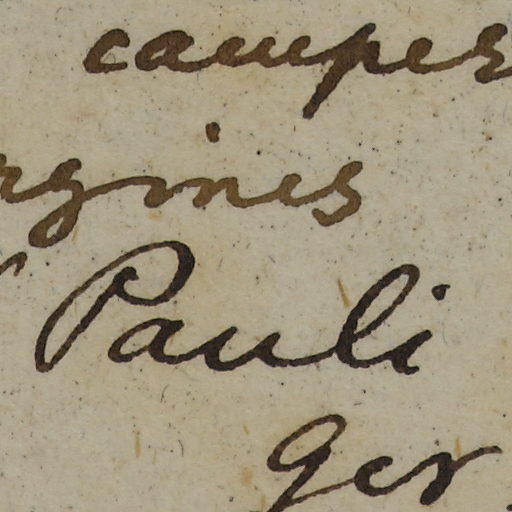 campes
rgines
Pauli
ger